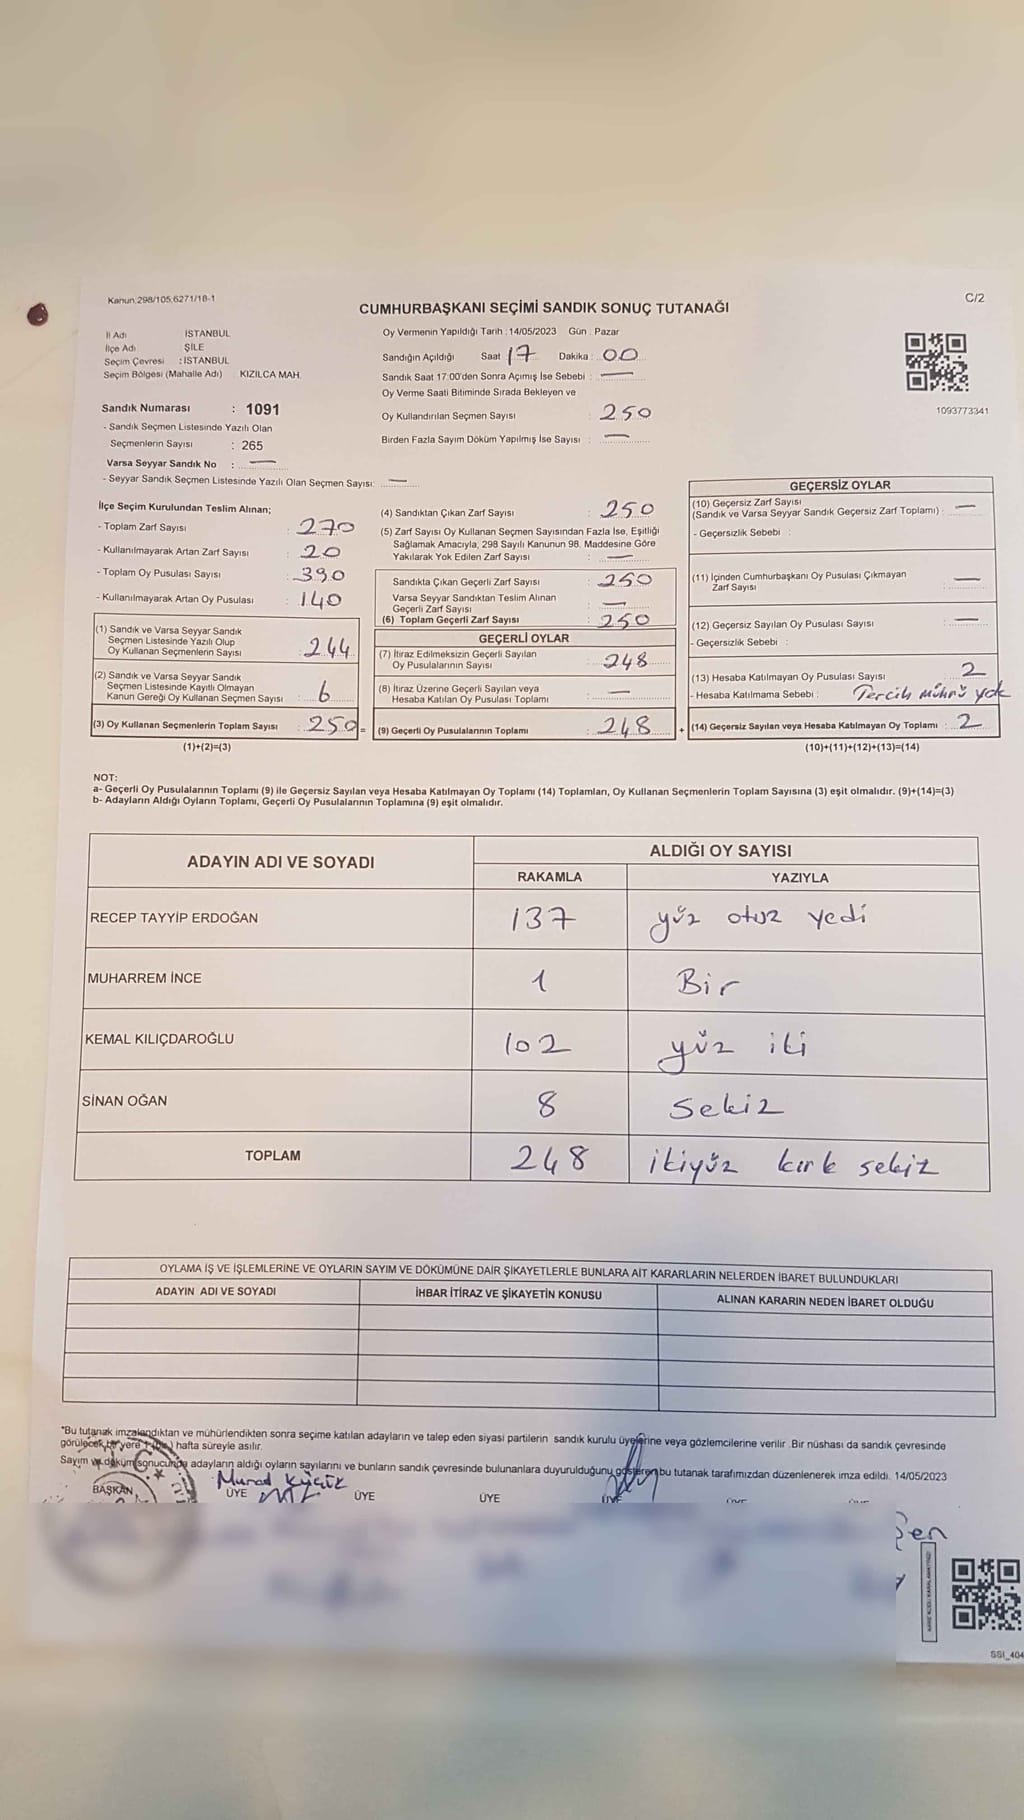 Kanun.298/105,6271/18-1
C/2
CUMHURBAŞKANI SEÇİMİ SANDIK SONUÇ TUTANAĞI
İl Adı : İSTANBUL
İlçe Adı ŞİLE
Seçim Çevresi : İSTANBUL
Seçim Bölgesi (Mahalle Adı) : KIZILCA MAH.
Sandık Numarası : 1091
- Sandık Seçmen Listesinde Yazılı Olan
Seçmenlerin Sayısı : 265
Varsa Seyyar Sandık No : —
- Seyyar Sandık Seçmen Listesinde Yazılı Olan Seçmen Sayısı: —
Oy Vermenin Yapıldığı Tarih : 14/05/2023 Gün : Pazar
Sandığın Açıldığı Saat 17 Dakika : 00
Sandık Saat 17:00'den Sonra Açımış İse Sebebi : —
Oy Verme Saati Bitiminde Sırada Bekleyen ve
Oy Kullandırılan Seçmen Sayısı : 250
Birden Fazla Sayım Döküm Yapılmış İse Sayısı : —
1093773341
İlçe Seçim Kurulundan Teslim Alınan;
- Toplam Zarf Sayısı : 270
- Kullanılmayarak Artan Zarf Sayısı : 20
- Toplam Oy Pusulası Sayısı : 390
- Kullanılmayarak Artan Oy Pusulası : 140
(1) Sandık ve Varsa Seyyar Sandık
Seçmen Listesinde Yazılı Olup
Oy Kullanan Seçmenlerin Sayısı : 244
(2) Sandık ve Varsa Seyyar Sandık
Seçmen Listesinde Kayıtlı Olmayan
Kanun Gereği Oy Kullanan Seçmen Sayısı : 6
(3) Oy Kullanan Seçmenlerin Toplam Sayısı : 250 =
(1)+(2)=(3)
(4) Sandıktan Çıkan Zarf Sayısı : 250
(5) Zarf Sayısı Oy Kullanan Seçmen Sayısından Fazla İse, Eşitliği
Sağlamak Amacıyla, 298 Sayılı Kanunun 98. Maddesine Göre
Yakılarak Yok Edilen Zarf Sayısı : —
Sandıkta Çıkan Geçerli Zarf Sayısı : 250
Varsa Seyyar Sandıktan Teslim Alınan
Geçerli Zarf Sayısı : —
(6) Toplam Geçerli Zarf Sayısı : 250
GEÇERLİ OYLAR
(7) İtiraz Edilmeksizin Geçerli Sayılan
Oy Pusulalarının Sayısı : 248
(8) İtiraz Üzerine Geçerli Sayılan veya
Hesaba Katılan Oy Pusulası Toplamı : —
(9) Geçerli Oy Pusulalarının Toplamı : 248 +
GEÇERSİZ OYLAR
(10) Geçersiz Zarf Sayısı
(Sandık ve Varsa Seyyar Sandık Geçersiz Zarf Toplamı) : —
- Geçersizlik Sebebi :
(11) İçinden Cumhurbaşkanı Oy Pusulası Çıkmayan
Zarf Sayısı : —
(12) Geçersiz Sayılan Oy Pusulası Sayısı : —
- Geçersizlik Sebebi :
(13) Hesaba Katılmayan Oy Pusulası Sayısı : 2
- Hesaba Katılmama Sebebi : Tercih mührü yok
(14) Geçersiz Sayılan veya Hesaba Katılmayan Oy Toplamı : 2
(10)+(11)+(12)+(13)=(14)
NOT:
a- Geçerli Oy Pusulalarının Toplamı (9) ile Geçersiz Sayılan veya Hesaba Katılmayan Oy Toplamı (14) Toplamları, Oy Kullanan Seçmenlerin Toplam Sayısına (3) eşit olmalıdır. (9)+(14)=(3)
b- Adayların Aldığı Oyların Toplamı, Geçerli Oy Pusulalarının Toplamına (9) eşit olmalıdır.
ADAYIN ADI VE SOYADI
ALDIĞI OY SAYISI
RAKAMLA YAZIYLA
RECEP TAYYİP ERDOĞAN 137 yüz otuz yedi
MUHARREM İNCE 1 Bir
KEMAL KILIÇDAROĞLU 102 yüz iki
SİNAN OĞAN 8 sekiz
TOPLAM 248 ikiyüz kırk sekiz
OYLAMA İŞ VE İŞLEMLERİNE VE OYLARIN SAYIM VE DÖKÜMÜNE DAİR ŞİKAYETLERLE BUNLARA AİT KARARLARIN NELERDEN İBARET BULUNDUKLARI
ADAYIN ADI VE SOYADI İHBAR İTİRAZ VE ŞİKAYETİN KONUSU ALINAN KARARIN NEDEN İBARET OLDUĞU
*Bu tutanak imzalandıktan ve mühürlendikten sonra seçime katılan adayların ve talep eden siyasi partilerin sandık kurulu üyelerine veya gözlemcilerine verilir .Bir nüshası da sandık çevresinde
görülecek bir yere 1 (bir) hafta süreyle asılır.
Sayım ve döküm sonucunda adayların aldığı oyların sayılarını ve bunların sandık çevresinde bulunanlara duyurulduğunu gösteren bu tutanak tarafımızdan düzenlenerek imza edildi. 14/05/2023
Murad Küçük
BAŞKAN ÜYE ÜYE ÜYE ÜYE